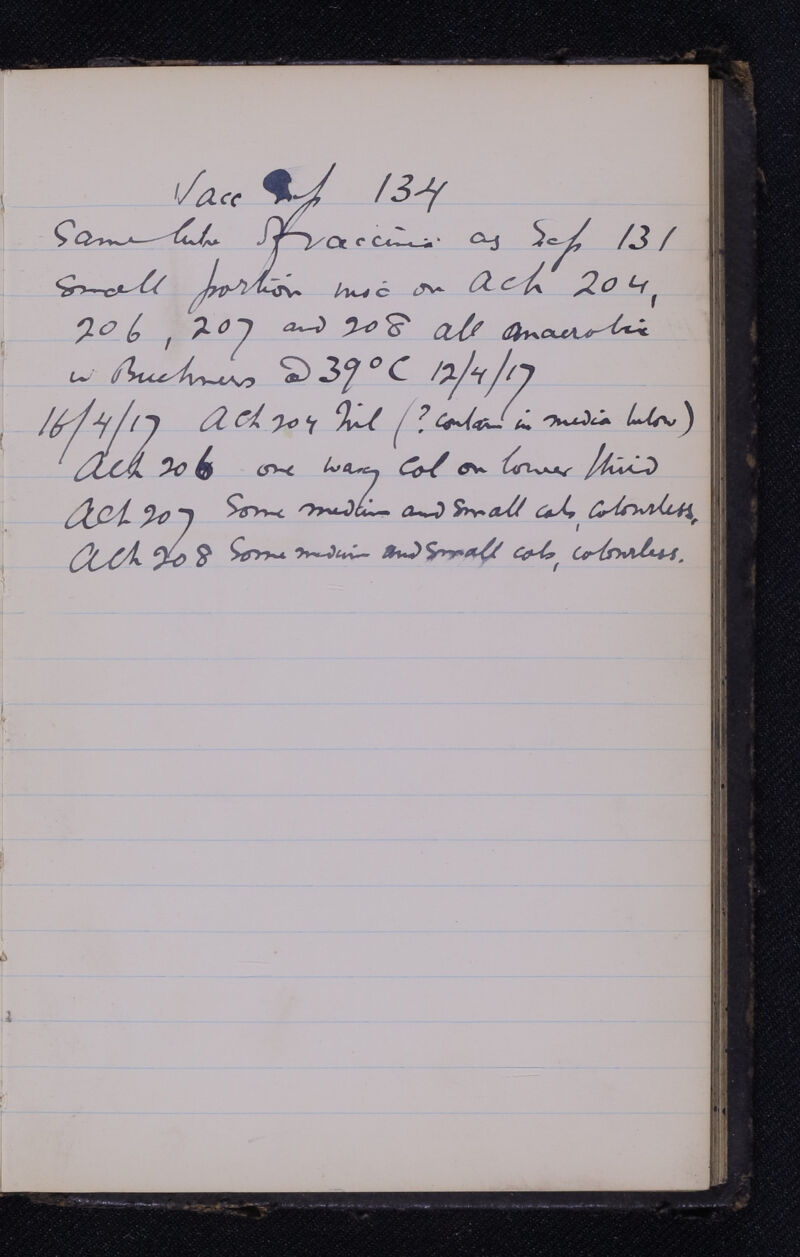 Vacc Sep 134
Same tube of vaccinia as Sep 131
Small portion inoc on Ach 204,
206, 207 and 208 all anaerobic
in Buchners @ 39°C 12/4/17
16/4/17 Ach 204 Nil (? contam in media below)
Ach 206 one waxy Col on lower third
Ach 207 Some medium and small cols, colourless,
Ach 208 Some medium and small cols, colourless.